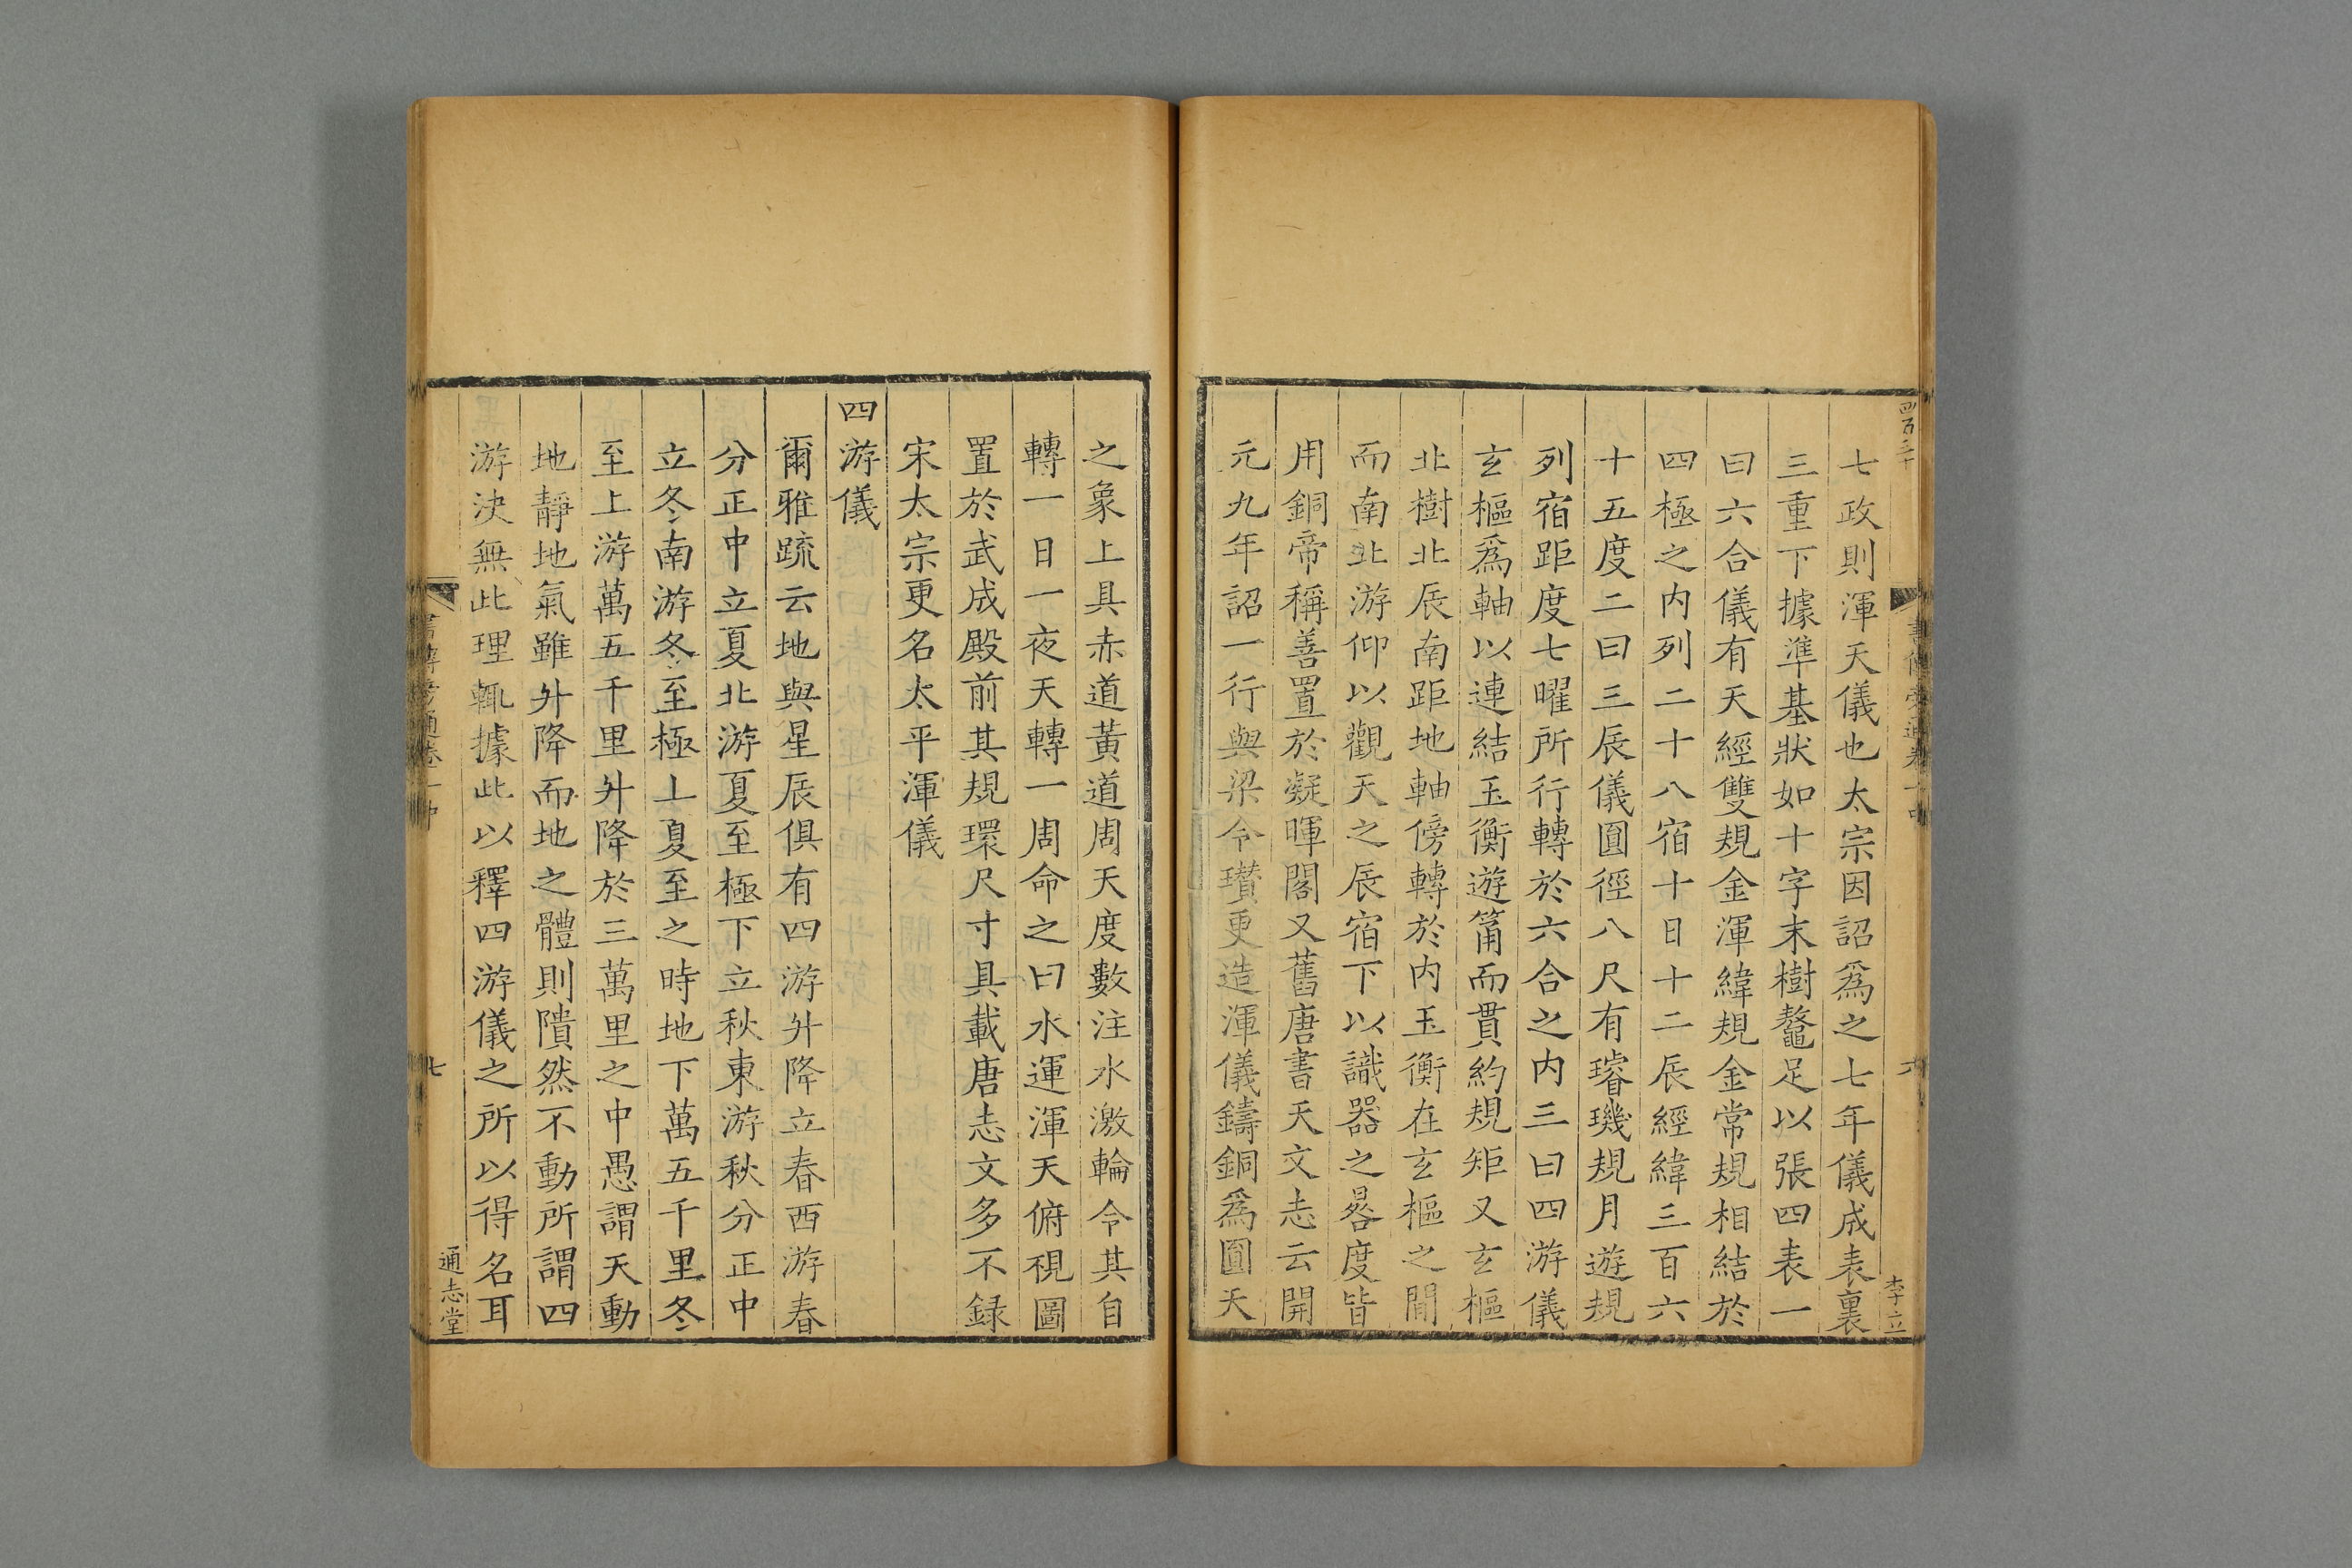 四百三十
七政則渾天儀也太宗因詔爲之七年儀成表裏
三重下據準基狀如十字末樹鼇足以張四表一
曰六合儀有天經雙規金渾緯規金常規相結於
四極之内列二十八宿十日十二辰經緯三百六
十五度二曰三辰儀圓徑八尺有璿璣規月遊規
列宿距度七曜所行轉於六合之内三曰四游儀
玄樞爲軸以連結玉衡遊筩而貫約規矩又玄樞
北樹北辰南距地軸傍轉於内玉衡在玄樞之閒
而南北游仰以觀天之辰宿下以識器之晷度皆
用銅帝稱善置於凝暉閣又舊唐書天文志云開
元九年詔一行與梁令瓚更造渾儀鑄銅爲圓天
六
李立
之象上具赤道黃道周天度數注水激輪令其自
轉一日一夜天轉一周命之曰水運渾天俯視圖
置於武成殿前其規環尺寸具載唐志文多不録
宋太宗更名太平渾儀
四游儀
爾雅疏云地與星辰俱有四游升降立春西游春
分正中立夏北游夏至極下立秋東游秋分正中
立冬南游冬至極上夏至之時地下萬五千里冬
至上游萬五千里升降於三萬里之中愚謂天動
地靜地氣雖升降而地之體則隤然不動所謂四
游決無此理輒據此以釋四游儀之所以得名耳
七
通志堂